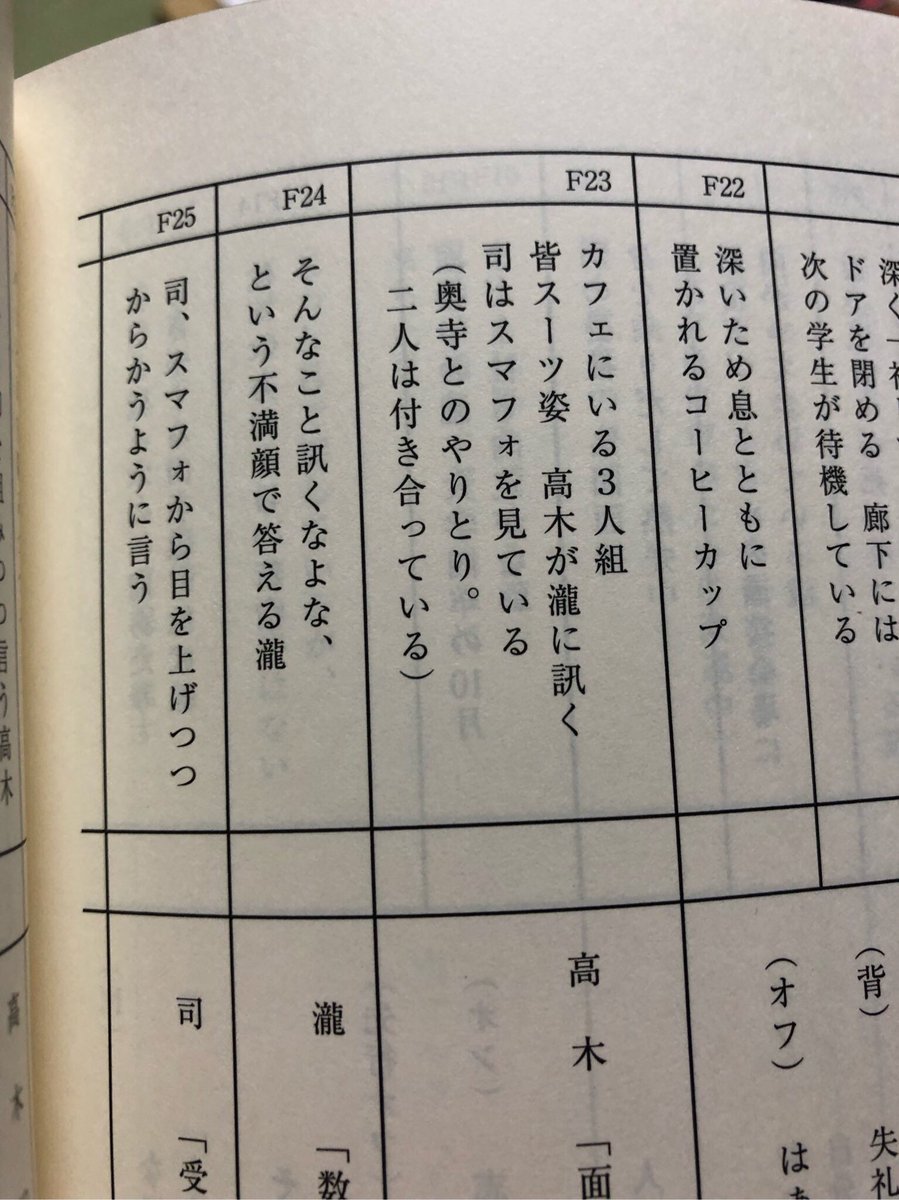 ドアを閉める 廊下には
次の学生が待機している
(背)
失礼
F22
深いため息とともに
置かれるコーヒーカップ
(オフ)
はぁ
F23
カフェにいる3人組
皆スーツ姿 高木が瀧に訊く
司はスマフォを見ている
(奥寺とのやりとり。
二人は付き合っている)
高木 「面
F24
そんなこと訊くなよな、
という不満顔で答える瀧
瀧 「数
F25
司、スマフォから目を上げつつ
からかうように言う
司 「受